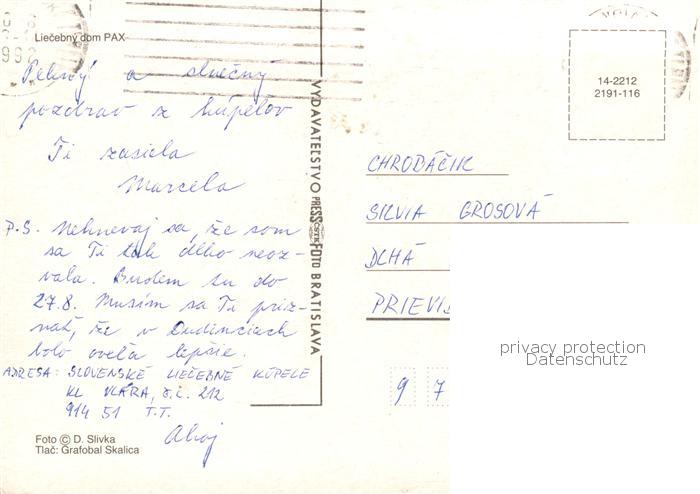 Liečebný dom PAX
Pekný a slnečný
pozdrav z kúpeľov
Ti zasiela
Marcela
P.S. Nehnevaj sa, že som
sa Ti tak dlho neoz-
vala. Budem tu do
27.8. Musím sa Ti priz-
nať, že v Dudinciach
bolo oveľa lepšie.
ADRESA: SLOVENSKÉ LIEČEBNÉ KÚPELE
KL VLÁRA, č.i. 212
914 51 T.T.
Ahoj
Foto © D. Slivka
Tlač: Grafobal Skalica
VYDAVATEĽSTVO PRESSFOTO BRATISLAVA
14-2212
2191-116
CHROBÁČIK
SILVIA GROSOVÁ
DLHÁ
PRIEVI
9 7
privacy protection
Datenschutz